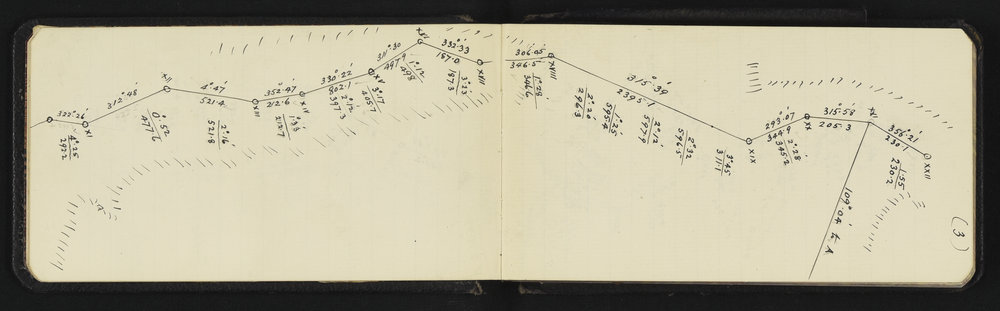 322°·26'
4°·25'
292·2
XI
312°·48'
0°·52'
477·6
XII
4°·47'
521·4
2°·16'
521·8
XIII
352°·47'
212·6
1°·33'
212·7
XIV
330°·22'
802·1
2°·12'
397·3
3°·17'
405·7
XV
311°·30
497·9
1°·12'
498
XVI
332°·33
187·0
3°·23'
187·3
XVII
306·05'
346·5
1°·28'
346·6
XVIII
315°·39'
2395·1
2°·20'
296·3
1°·25'
595·4
2°·12'
597·9
2°·32
596·5
3°·45'
311·1
XIX
293°·07
344·9
2°·28'
345·2
XX
315°·58'
205·3
356°·21'
230·1
1·55
230·2
XXII
109°·04'
(3)